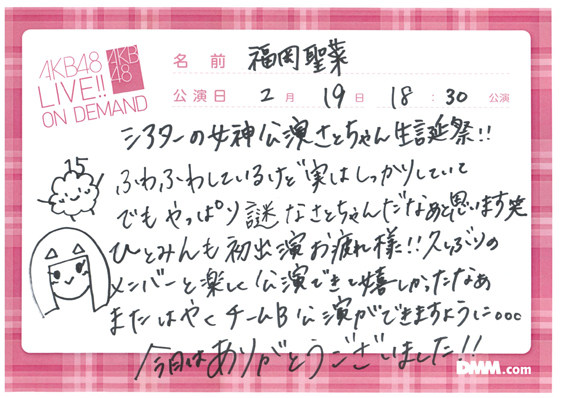 AKB48
LIVE!!
ON DEMAND
AKB
48
名前 福岡聖菜
公演日 2月 19日 18:30 公演
シアターの女神公演さとちゃん生誕祭!!
15
ふわふわしているけど実はしっかりしていて
でもやっぱり謎なさとちゃんだなあと思います笑
ひとみんも初出演お疲れ様!!久しぶりの
メンバーと楽しく公演できて嬉しかったなぁ
またはやくチームB公演ができますように...
今日はありがとうございました!!
DMM.com